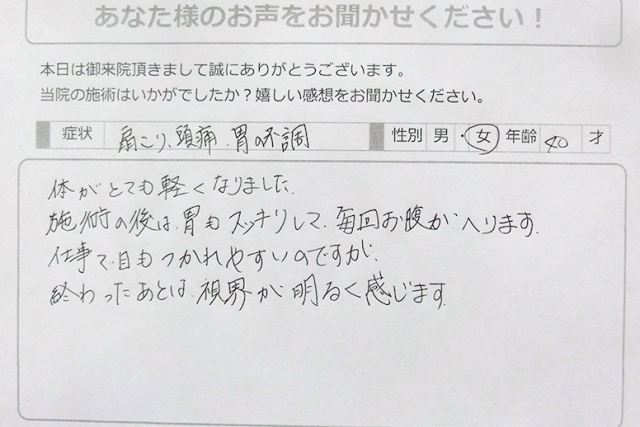 あなた様のお声をお聞かせください！
本日は御来院頂きまして誠にありがとうございます。
当院の施術はいかがでしたか？嬉しい感想をお聞かせください。
症状 肩こり、頭痛、胃の不調 性別 男・女 年齢 40 才
体がとても軽くなりました。
施術の後は、胃もスッキリして、毎回お腹がへります。
仕事で目もつかれやすいのですが、
終わったあとは、視界が明るく感じます